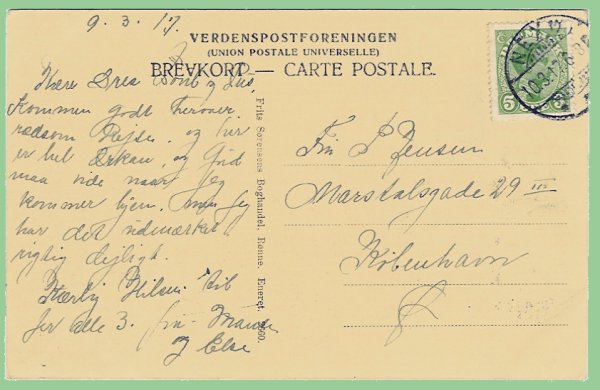 9.3.17.
VERDENSPOSTFORENINGEN
(UNION POSTALE UNIVERSELLE)
BREVKORT — CARTE POSTALE.
Kære
Kommen godt herover
rædsom Rejse, og her
er hel Orkan, og Gud
maa vide naar jeg
kommer hjem, men jeg
har det udmærket
rigtig dejligt.
Kærlig Hilsen til
Jer alle 3. fra
og Else
Frits Sørensens Boghandel, Rønne. Eneret.
5 5
10.3.17
Fru P Jensen
Marstalsgade 29 III
København